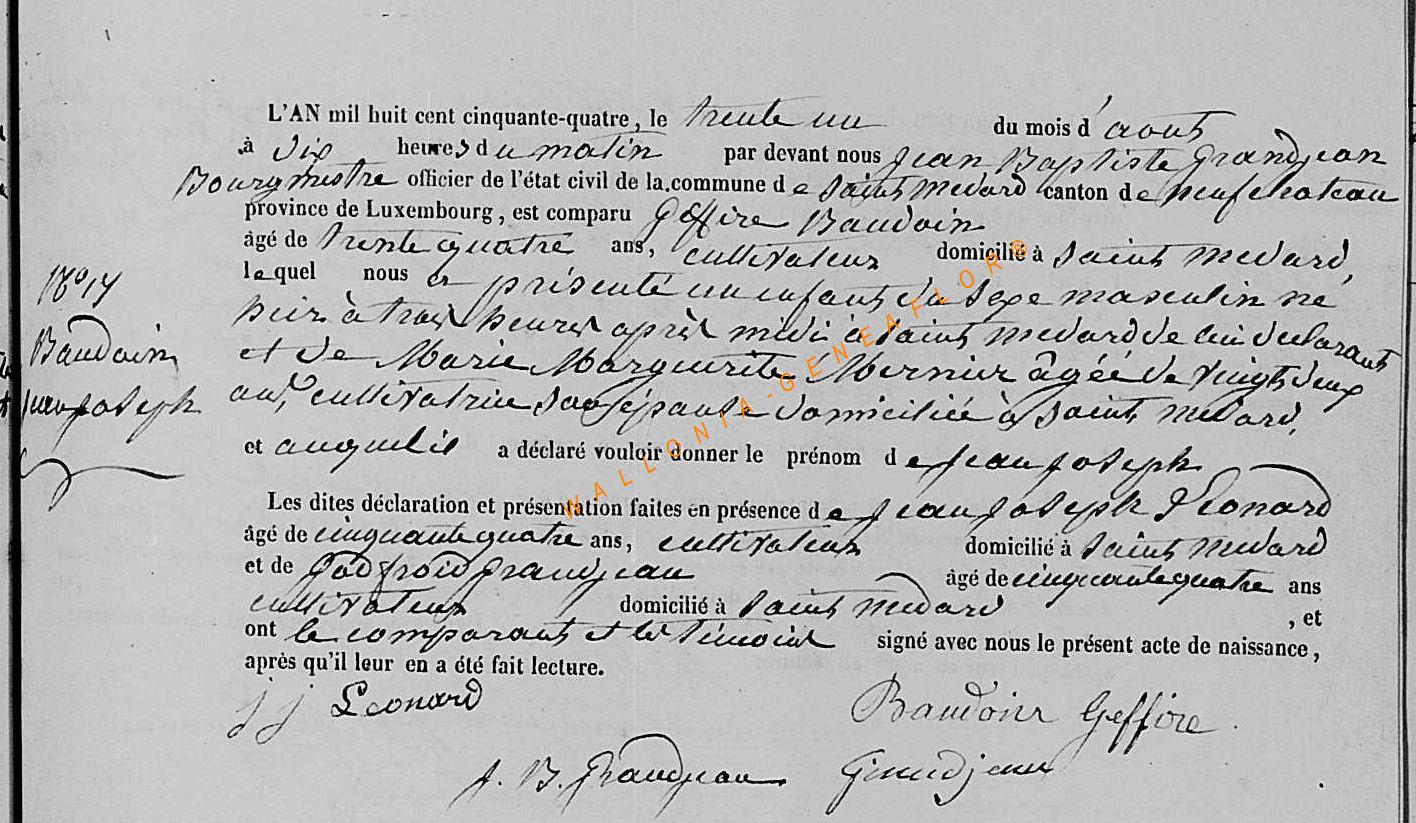 L'AN mil huit cent cinquante-quatre, le trente un du mois d'aout
à dix heures du matin par devant nous Jean Baptiste Grandjean
Bourgmestre officier de l'état civil de la commune de Saint Medard canton de neufchateau
province de Luxembourg, est comparu Geffire Baudoin
âgé de trente quatre ans, cultivateur domicilié à Saint Medard,
lequel nous a présenté un enfant du sexe masculin né
hier à trois heures après midi à Saint Medard de lui declarant
et de Marie Marguerite Mernier âgée de vingt deux
ans, cultivatrice son épouse domiciliée à Saint Medard,
et auquel il a déclaré vouloir donner le prénom de Jean Joseph
Les dites déclaration et présentation faites en présence de Jean Joseph Léonard
âgé de cinquante quatre ans, cultivateur domicilié à Saint Medard
et de Godfroid Grandjean âgé de cinquante quatre ans
cultivateur domicilié à Saint Medard, et
ont le comparant et les témoins signé avec nous le présent acte de naissance,
après qu'il leur en a été fait lecture.
j j Léonard Baudoin Geffire
J. B. Grandjean Grandjean
No 14
Baudoin
Jean Joseph
WALLONIA-GENEAFLOR®